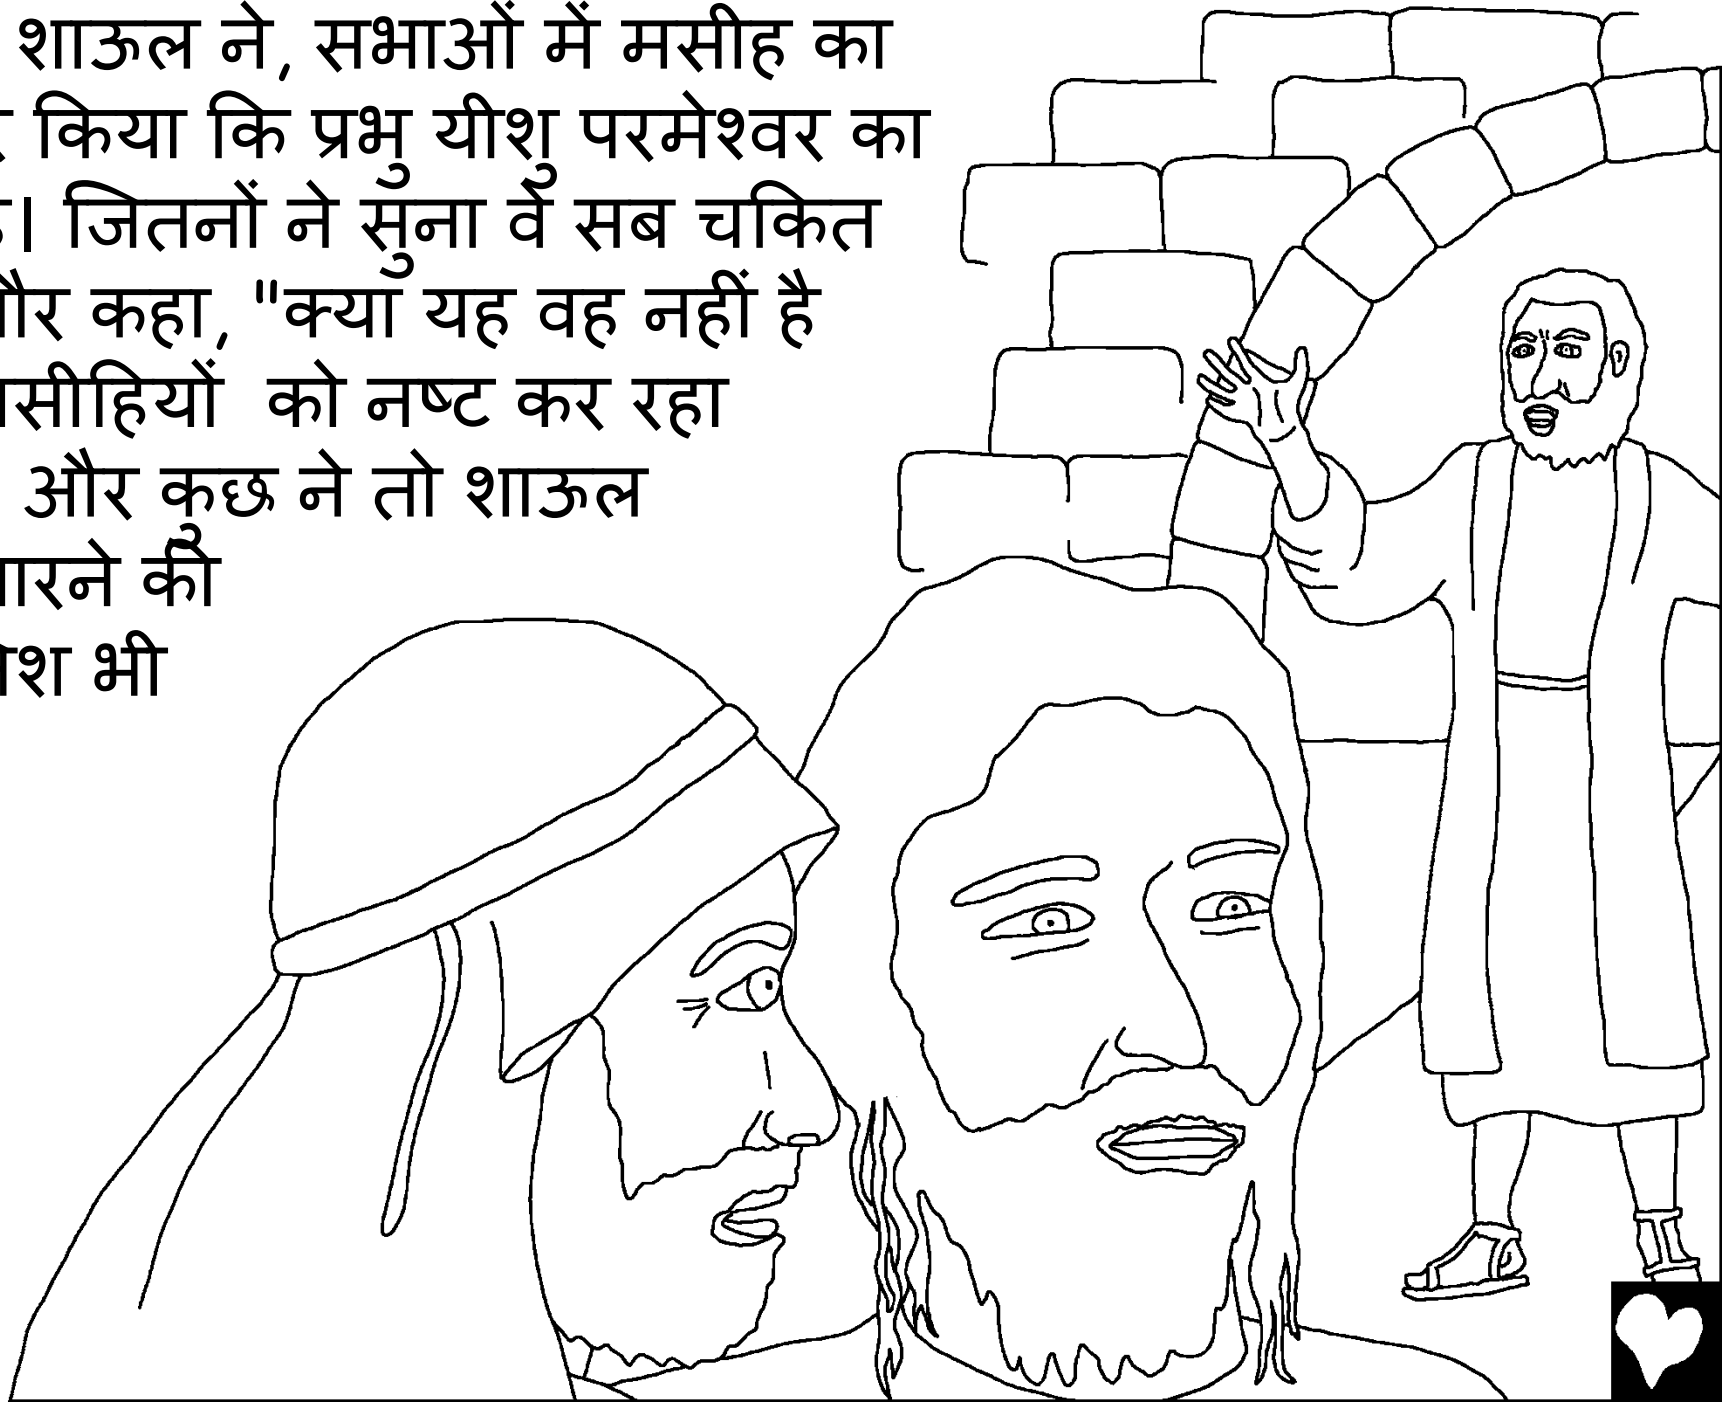 शाऊल ने, सभाओं में मसीह का
किया कि प्रभु यीशु परमेश्वर का
। जितनों ने सुना वे सब चकित
कहा, "क्या यह वह नहीं है
को नष्ट कर रहा
और कुछ ने तो शाऊल
की
भी